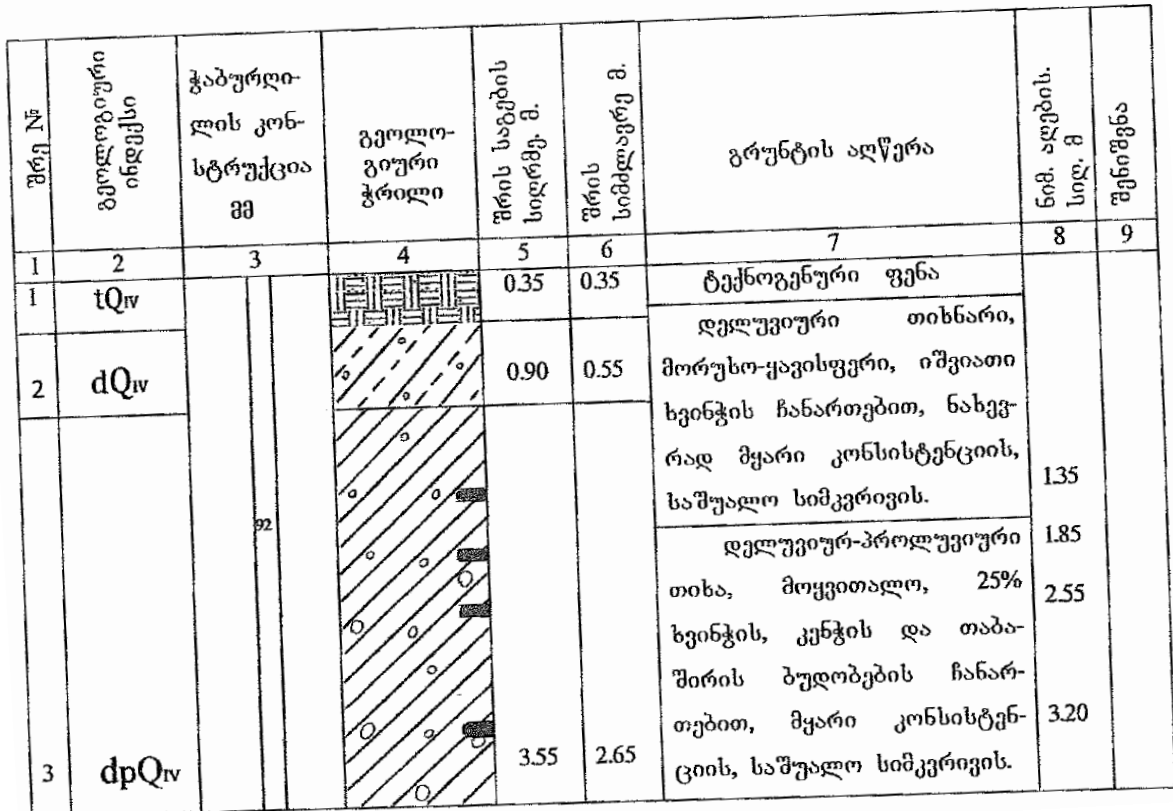 შრე №
გეოლოგიური
ინდექსი
ჭაბურღი-
ლის კონ-
სტრუქცია
მმ
გეოლო-
გიური
ჭრილი
შრის საგების
სიღრმე. მ.
შრის
სიმძლავრე მ.
გრუნტის აღწერა
ნიმ. აღების.
სიღ, მ
შენიშვნა
1 2 3 4 5 6 7 8 9
1 tQIV 0.35 0.35 ტექნოგენური ფენა
დელუვიური თიხნარი,
2 dQIV 0.90 0.55 მორუხო-ყავისფერი, იშვიათი
ხვინჭის ჩანართებით, ნახევ-
რად მყარი კონსისტენციის,
1.35
საშუალო სიმკვრივის.
92
დელუვიურ-პროლუვიური 1.85
თიხა, მოყვითალო, 25% 2.55
ხვინჭის, კენჭის და თაბა-
შირის ბუდობების ჩანარ-
თებით, მყარი კონსისტენ- 3.20
3 dpQIV 3.55 2.65 ციის, საშუალო სიმკვრივის.